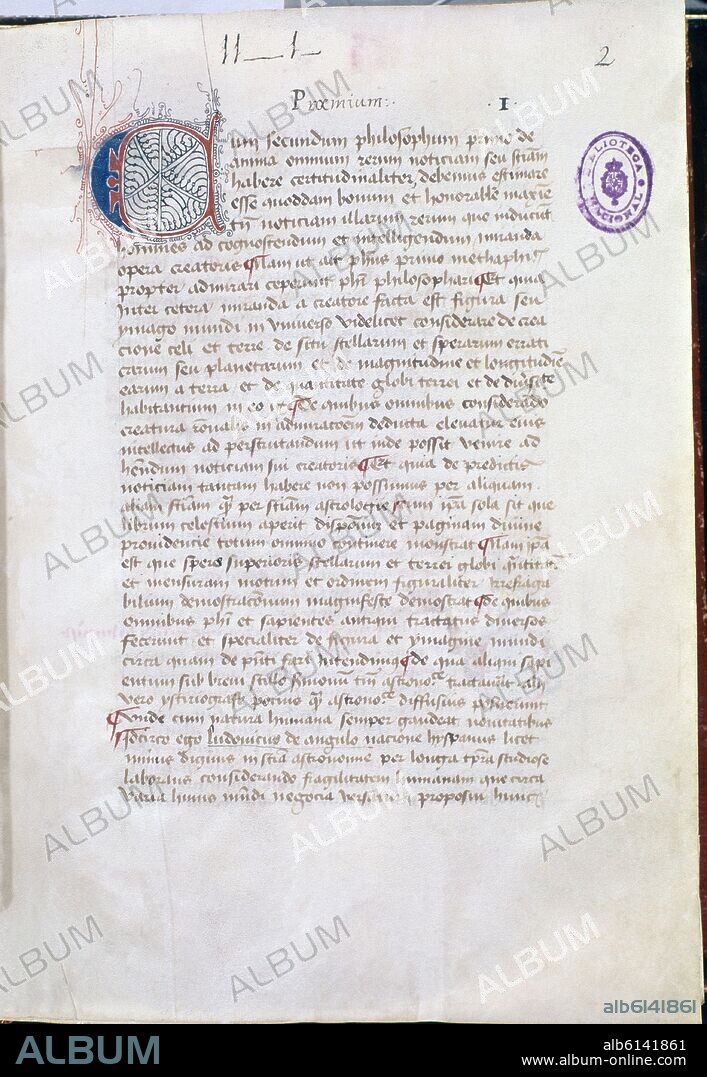 II_I_
2
Proemium:.
·I·
Cum secundum philosophum primo de
anima omnium rerum noticiam seu stiam
habere certitudinaliter, debemus estimare
esse quoddam bonum et honorabile maxie
tn noticiam illarum rerum que inducit
homines ad cognoscendum et intelligendum miranda
opera creatoris Nam ut ait phus primo methaphis
propter admirari ceperunt phi philosophari Et quia
inter cetera miranda a creatore facta est figura seu
ymago mundi in universo videlicet considerare de crea
cione celi et terre de situ stellarum et sperarum errati
carum seu planetarum et de magnitudine et longitudie
earum a terra et de quantitate globi terrei et de dusite
habitantium in eo De quibus omnibus considerado
creatura in admiracoem deducta elevatur eius
intellectus ad perscrutandum ut inde possit venire ad
hendum noticiam sui creatoris Et quia de predictis
noticiam tantam habere non possumus per aliquam
aliam stiam per stiam astrologie cum ipa sola sit que
librum celestium aperit et paginam divine
providencie totum omnino continere monstrat Nam ipa
est que spere superioris stellarum et terrei globi
et mensuram motum et ordinem figuraliter irrefraga
bilium demostracionum magnifeste demostrat de quibus
omnibus phi et sapientes antiqui tractatus diversos
fecerunt et specialiter de figura et ymagine mundi
circa quam de pnti fari intendimus de qua aliqui sapi
entium sub brevi stillo tractarut alij
vero ystiriografi pocius diffusius posuerunt
Unde cum natura humana semper gaudeat novitatibus
Idcirco ego Ludovicus de angulo nacione hyspanus licet
minus dignus in stia astronomie per longa tpra studiose
laborans considerando fragilitatem humanam que circa
varia huius mudi negocia versatur proposui hunc
BIBLIOTECA NACIONAL
alb6141861
ALBUM
alb6141861
www.album-online.com